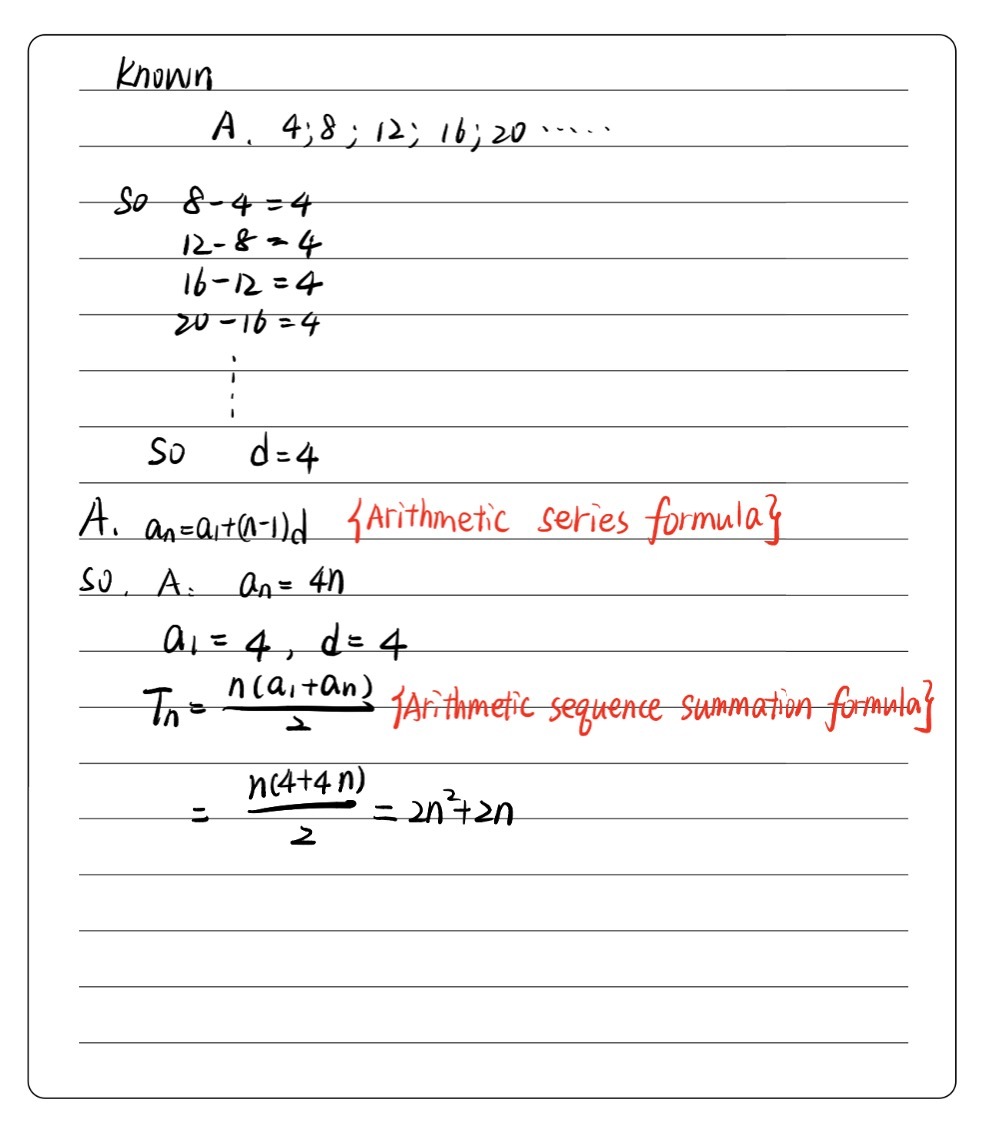 Known
A. 4; 8; 12; 16; 20 ······
So 8-4=4
12-8=4
16-12=4
20-16=4
⋮
So d=4
A. aₙ=a₁+(n-1)d {Arithmetic series formula}
So, A: aₙ= 4n
a₁= 4, d= 4
Tₙ= n(a₁+aₙ)/2 {Arithmetic sequence summation formula}
= n(4+4n)/2 = 2n²+2n